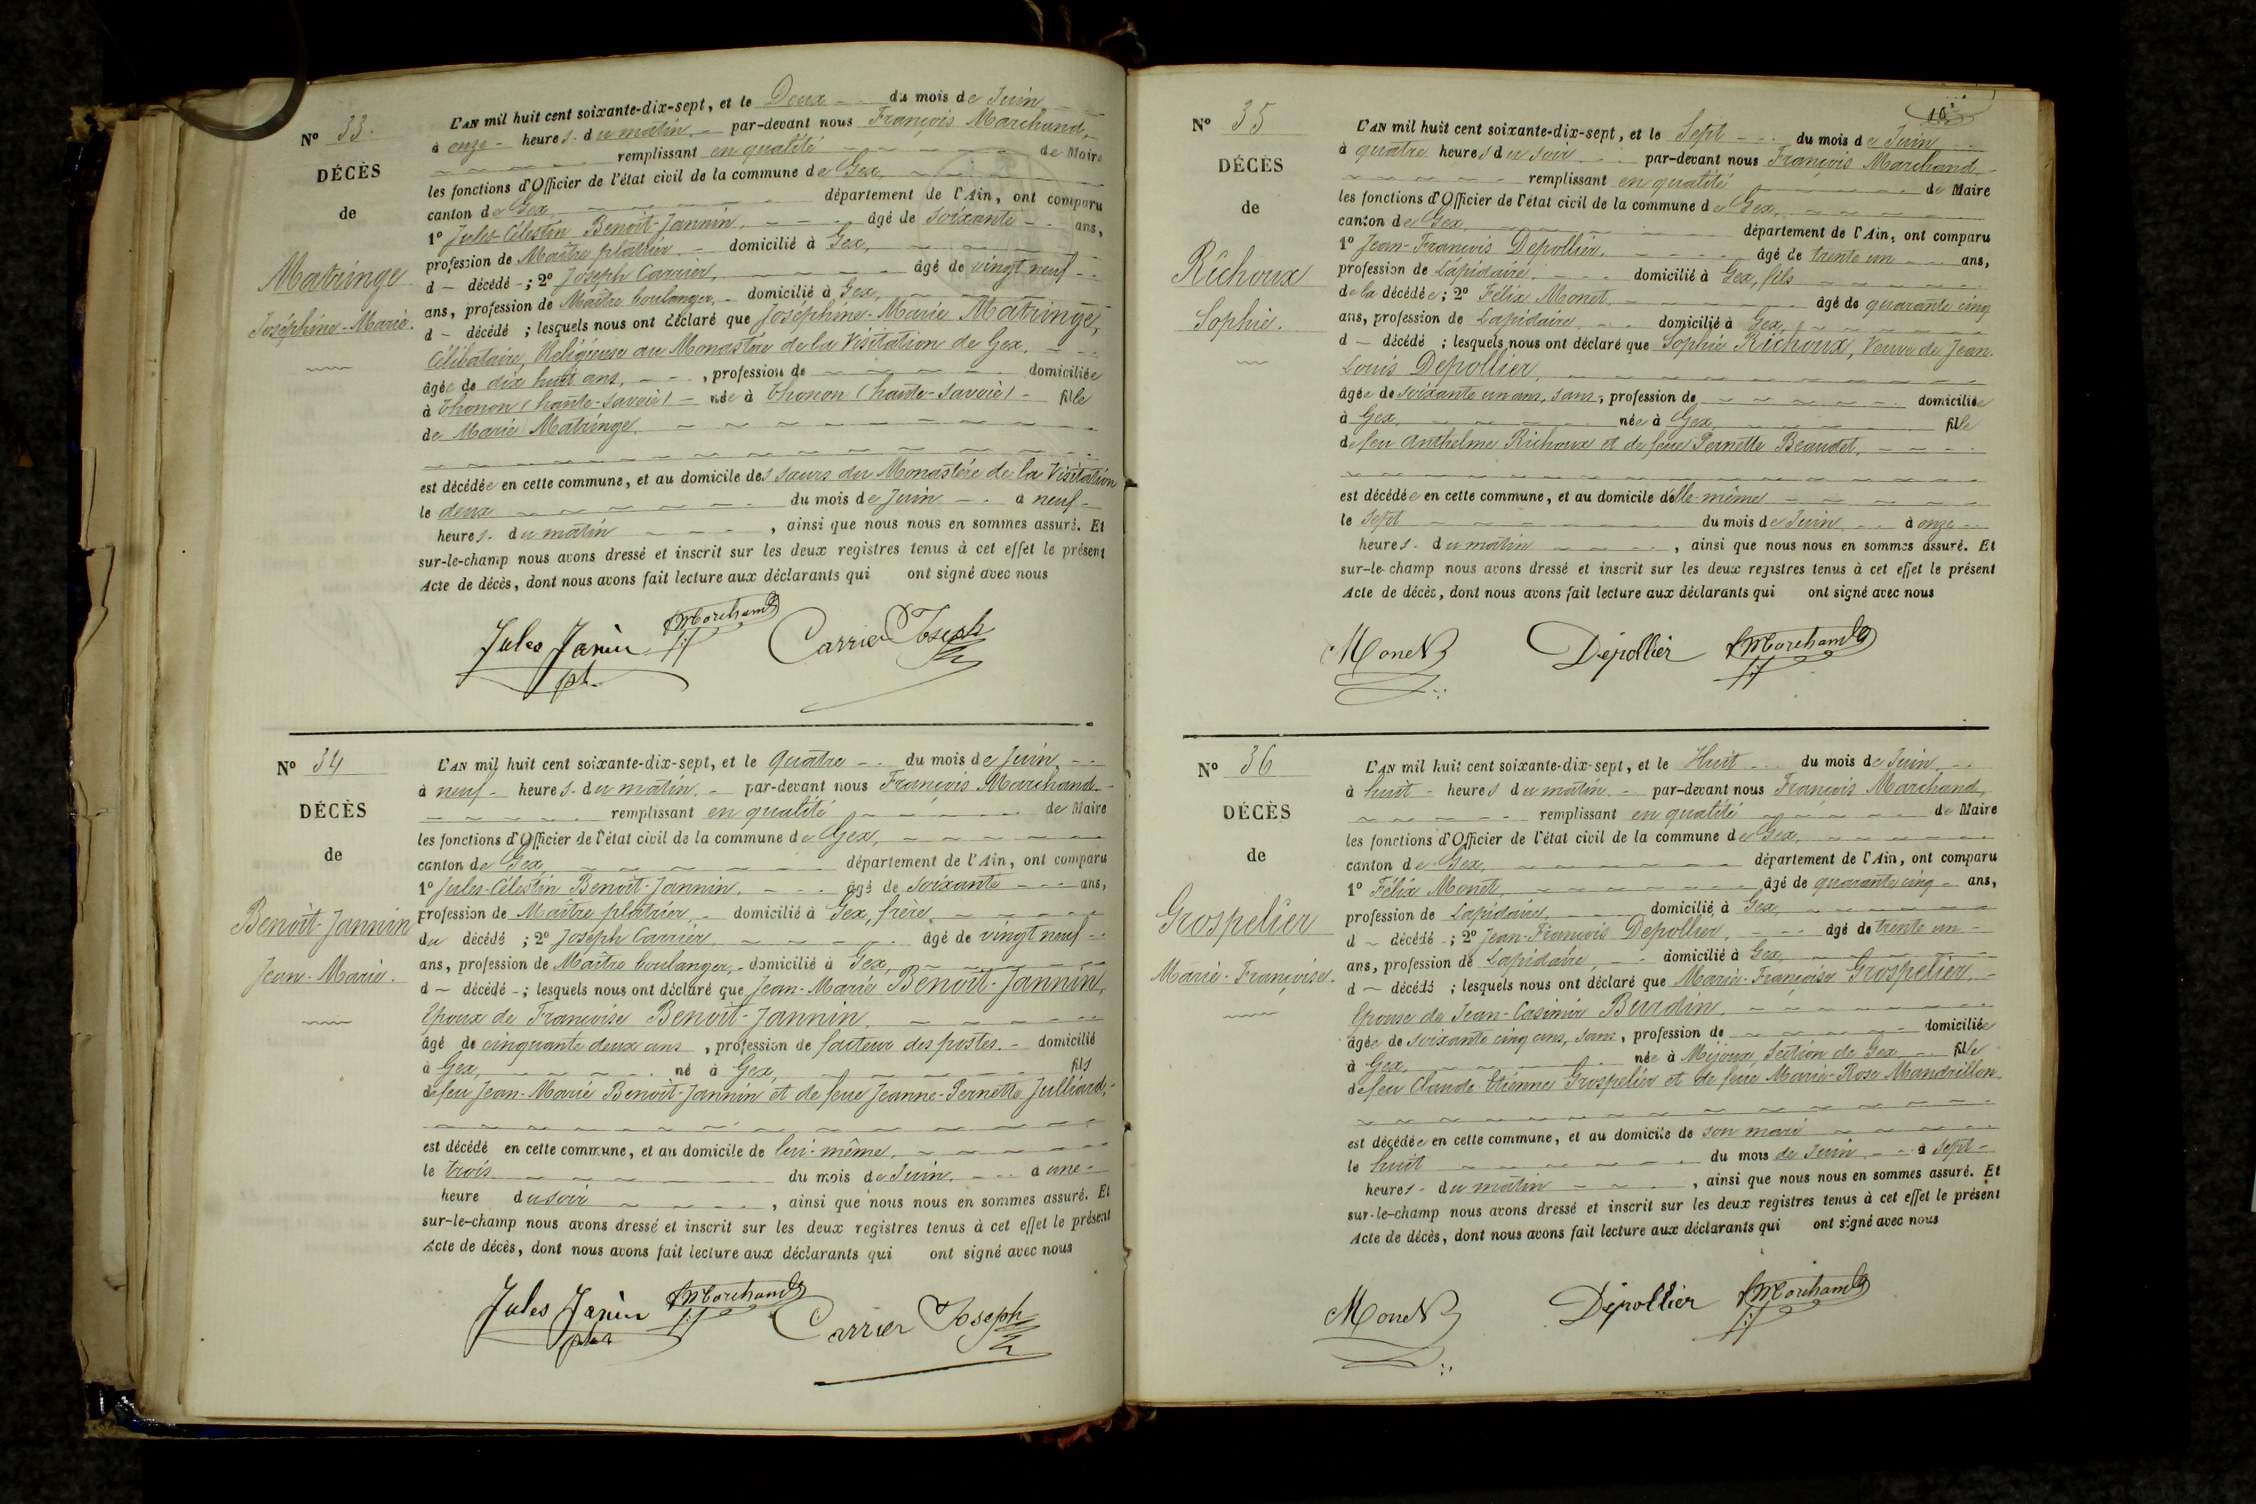 Nº 33.
DÉCÈS
de
Matringe
Joséphine-Marie.
L'AN mil huit cent soixante-dix-sept, et le Deux du mois de Juin
à onze heures du matin par-devant nous François Marchand,
remplissant en qualité de Maire
les fonctions d'Officier de l'état civil de la commune de Gex
canton de Gex département de l'Ain, ont comparu
1º Jules-Célestin Benoit-Jannin, âgé de soixante ans,
profession de Maître platrier domicilié à Gex,
d décédé ; 2º Joseph Carrier, âgé de vingt neuf
ans, profession de Maître boulanger, domicilié à Gex,
d décédé ; lesquels nous ont déclaré que Joséphine-Marie Matringe,
Célibataire, Religieuse au Monastère de la Visitation de Gex,
âgée de dix huit ans, , profession de domiciliée
à Thonon (haute-savoie) née à Thonon (haute-savoie) fille
de Marie Matringe.
est décédée en cette commune, et au domicile des sœurs du Monastère de la Visitation
le deux du mois de Juin à neuf
heures du matin , ainsi que nous nous en sommes assuré. Et
sur-le-champ nous avons dressé et inscrit sur les deux registres tenus à cet effet le présent
Acte de décès, dont nous avons fait lecture aux déclarants qui ont signé avec nous
Jules Janin Marchand Carrier Joseph
Nº 34
DÉCÈS
de
Benoit-Jannin
Jean-Marie.
L'AN mil huit cent soixante-dix-sept, et le quatre du mois de Juin,
à neuf heures du matin, par-devant nous François Marchand
remplissant en qualité de Maire
les fonctions d'Officier de l'état civil de la commune de Gex,
canton de Gex département de l'Ain, ont comparu
1º Jules-Célestin Benoit-Jannin, âgé de soixante ans,
profession de Maître platrier, domicilié à Gex, frère
du décédé ; 2º Joseph Carrier âgé de vingt neuf
ans, profession de Maître boulanger, domicilié à Gex,
d décédé ; lesquels nous ont déclaré que Jean-Marie Benoit-Jannin,
Epoux de Françoise Benoit-Jannin,
âgé de cinquante deux ans , profession de facteur des postes. domicilié
à Gex, né à Gex, fils
de feu Jean-Marie Benoit-Jannin et de feue Jeanne-Pernette Julliard,
est décédé en cette commune, et au domicile de lui-même,
le trois du mois de Juin, à une
heure du soir , ainsi que nous nous en sommes assuré. Et
sur-le-champ nous avons dressé et inscrit sur les deux registres tenus à cet effet le présent
Acte de décès, dont nous avons fait lecture aux déclarants qui ont signé avec nous
Jules Janin Marchand Carrier Joseph
Nº 35
DÉCÈS
de
Richoux
Sophie.
L'AN mil huit cent soixante-dix-sept, et le Sept du mois de Juin
à quatre heures du soir par-devant nous François Marchand
remplissant en qualité de Maire
les fonctions d'Officier de l'état civil de la commune de Gex,
canton de Gex, département de l'Ain, ont comparu
1º Jean-François Depollier, âgé de trente un ans,
profession de Lapidaire, domicilié à Gex, fils
de la décédée ; 2º Félix Monet, âgé de quarante cinq
ans, profession de Lapidaire domicilié à Gex,
d décédé ; lesquels nous ont déclaré que Sophie Richoux, Veuve de Jean
Louis Depollier,
âgée de soixante un ans, sans, profession de domiciliée
à Gex, née à Gex, fille
de feu Anthelme Richoux et de feue Pernette Beaudet,
est décédée en cette commune, et au domicile d'elle-même
le sept du mois de Juin à onze
heures du matin , ainsi que nous nous en sommes assuré. Et
sur-le-champ nous avons dressé et inscrit sur les deux registres tenus à cet effet le présent
Acte de décès, dont nous avons fait lecture aux déclarants qui ont signé avec nous
Monet Dépollier Marchand
Nº 36
DÉCÈS
de
Grospelier
Marie-Françoise.
L'AN mil huit cent soixante-dix-sept, et le Huit du mois de Juin
à huit heures du matin par-devant nous François Marchand,
remplissant en qualité de Maire
les fonctions d'Officier de l'état civil de la commune de Gex,
canton de Gex, département de l'Ain, ont comparu
1º Félix Monet, âgé de quarante cinq ans,
profession de Lapidaire, domicilié à Gex,
d décédé ; 2º Jean-François Depollier, âgé de trente un
ans, profession de Lapidaire, domicilié à Gex,
d décédé ; lesquels nous ont déclaré que Marie-Françoise Grospelier,
Epouse de Jean-Casimir Burdin,
âgée de soixante cinq ans, sans, profession de domiciliée
à Gex, née à Mijoux, Section de Gex fille
de feu Claude-Etienne Grospelier et de feue Marie-Rose Mandrillon
est décédée en cette commune, et au domicile de son mari
le huit du mois de Juin à sept
heures du matin , ainsi que nous nous en sommes assuré. Et
sur-le-champ nous avons dressé et inscrit sur les deux registres tenus à cet effet le présent
Acte de décès, dont nous avons fait lecture aux déclarants qui ont signé avec nous
Monet Dépollier Marchand